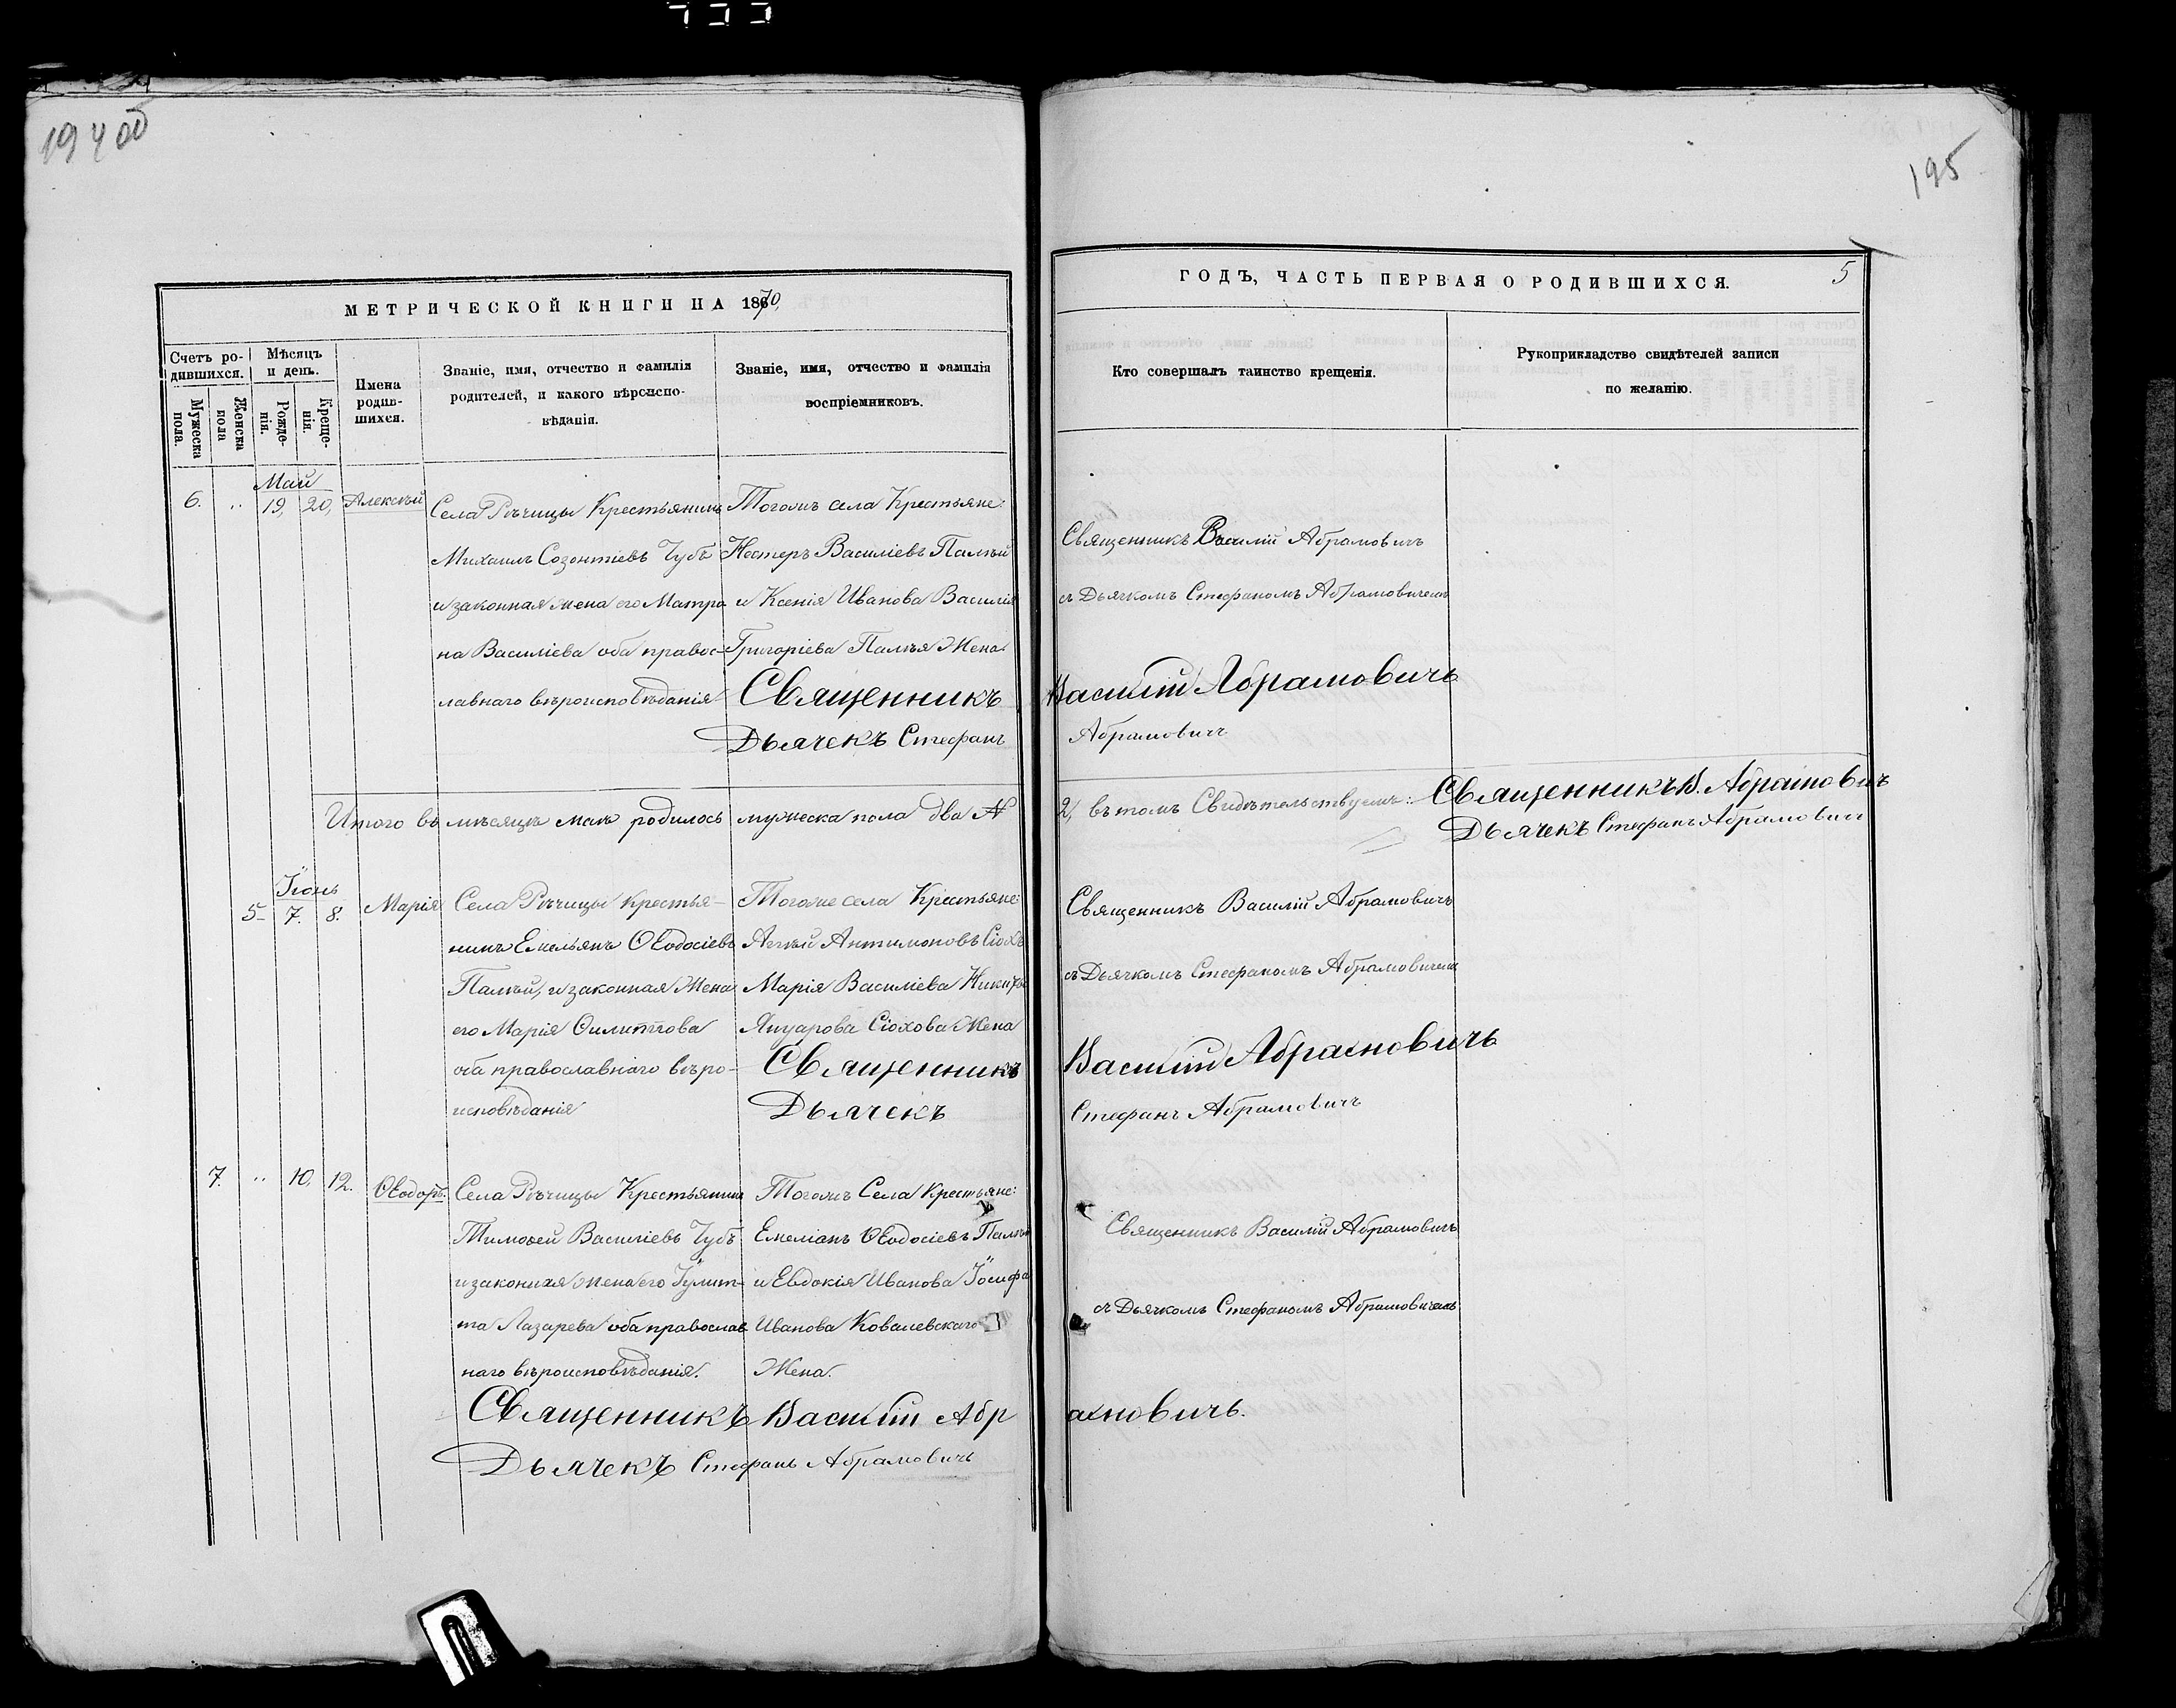 194 об
195
МЕТРИЧЕСКОЙ КНИГИ НА 1870,
Счетъ ро-
дившихся.
Мѣсяцъ
и день.
Имена
родив-
шихся.
Званіе, имя, отчество и фамилія
родителей, и какого вѣроиспо-
вѣданія.
Званіе, имя, отчество и фамилія
воспріемниковъ.
Мужеска
пола.
Женска
пола
Рожде-
нія.
Креще-
нія.
Май
6. .. 19, 20, Алексѣй
Села Рѣчицы Крестьянинъ
Михаилъ Созонтіевъ Чубъ
и законная жена его Матро
на Василіева оба правос-
лавнаго вѣроисповѣданія
Тогожъ села Крестьяне:
Нестеръ Василіевъ Палѣй
и Ксенія Иванова Василія
Григоріева Палѣя Жена.
Священникъ
Дьячекъ Стефанъ
Итого въ мѣсяцѣ маѣ родилось мужеска пола два №
Іюнь
5- 7. 8. Марія
Села Рѣчицы Крестья-
нинъ Емельянъ Ѳеодосіевъ
Палѣй, и законная Жена
его Марія Филиппова
оба православнаго вѣро-
исповѣданія
Тогоже села Крестьяне:
Антимоновъ Сіохъ
Марія Василіева
Януарова Сіохова Жена
Священникъ
Дьячекъ
7. .. 10. 12. Ѳеодоръ.
Села Рѣчицы Крестьянинъ
Тимоѳей Василіевъ Чубъ
и законная жена его Іулит-
та Лазарева оба православ
наго вѣроисповѣданія.
Тогожъ Села Крестьяне:
Емеліанъ Ѳеодосіевъ Палѣй
и Евдокія Иванова Іосифа
Иванова Ковалевскаго
Жена.
Священникъ Василій Абр
Дьячекъ Стефанъ Абрамовичъ
ГОДЪ, ЧАСТЬ ПЕРВАЯ О РОДИВШИХСЯ.
5
Кто совершалъ таинство крещенія.
Рукоприкладство свидѣтелей записи
по желанію.
Священникъ Василій Абрамовичъ
съ Дьячкомъ Стефаномъ Абрамовичемъ
Василій Абрамовичъ
Абрамовичъ
2, въ томъ Свидѣтельствуемъ: Священникъ В. Абрамовичъ
Дьячекъ Стефанъ Абрамовичъ
Священникъ Василій Абрамовичъ
съ Дьячкомъ Стефаномъ Абрамовичемъ
Василій Абрамовичъ
Стефанъ Абрамовичъ
Священникъ Василій Абрамовичъ
съ Дьячкомъ Стефаномъ Абрамовичемъ
амовичъ.